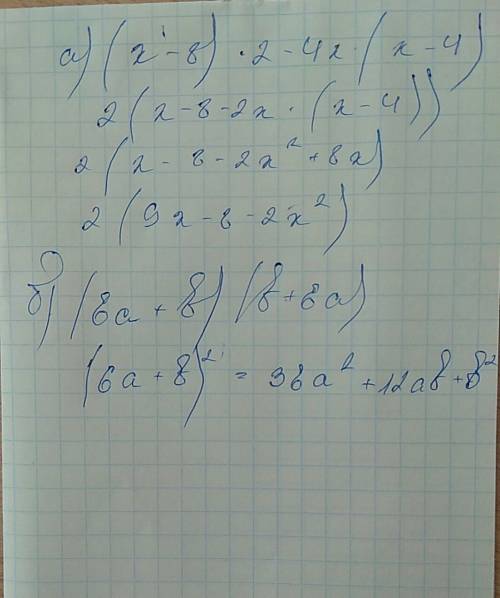 а) (x - 8) · 2 - 4x · (x - 4)
2 (x - 8 - 2x · (x - 4))
2 (x - 8 - 2x² + 8x)
2 (9x - 8 - 2x²)
б) (6a + b) (b + 6a)
(6a + b)² = 36a² + 12ab + b²